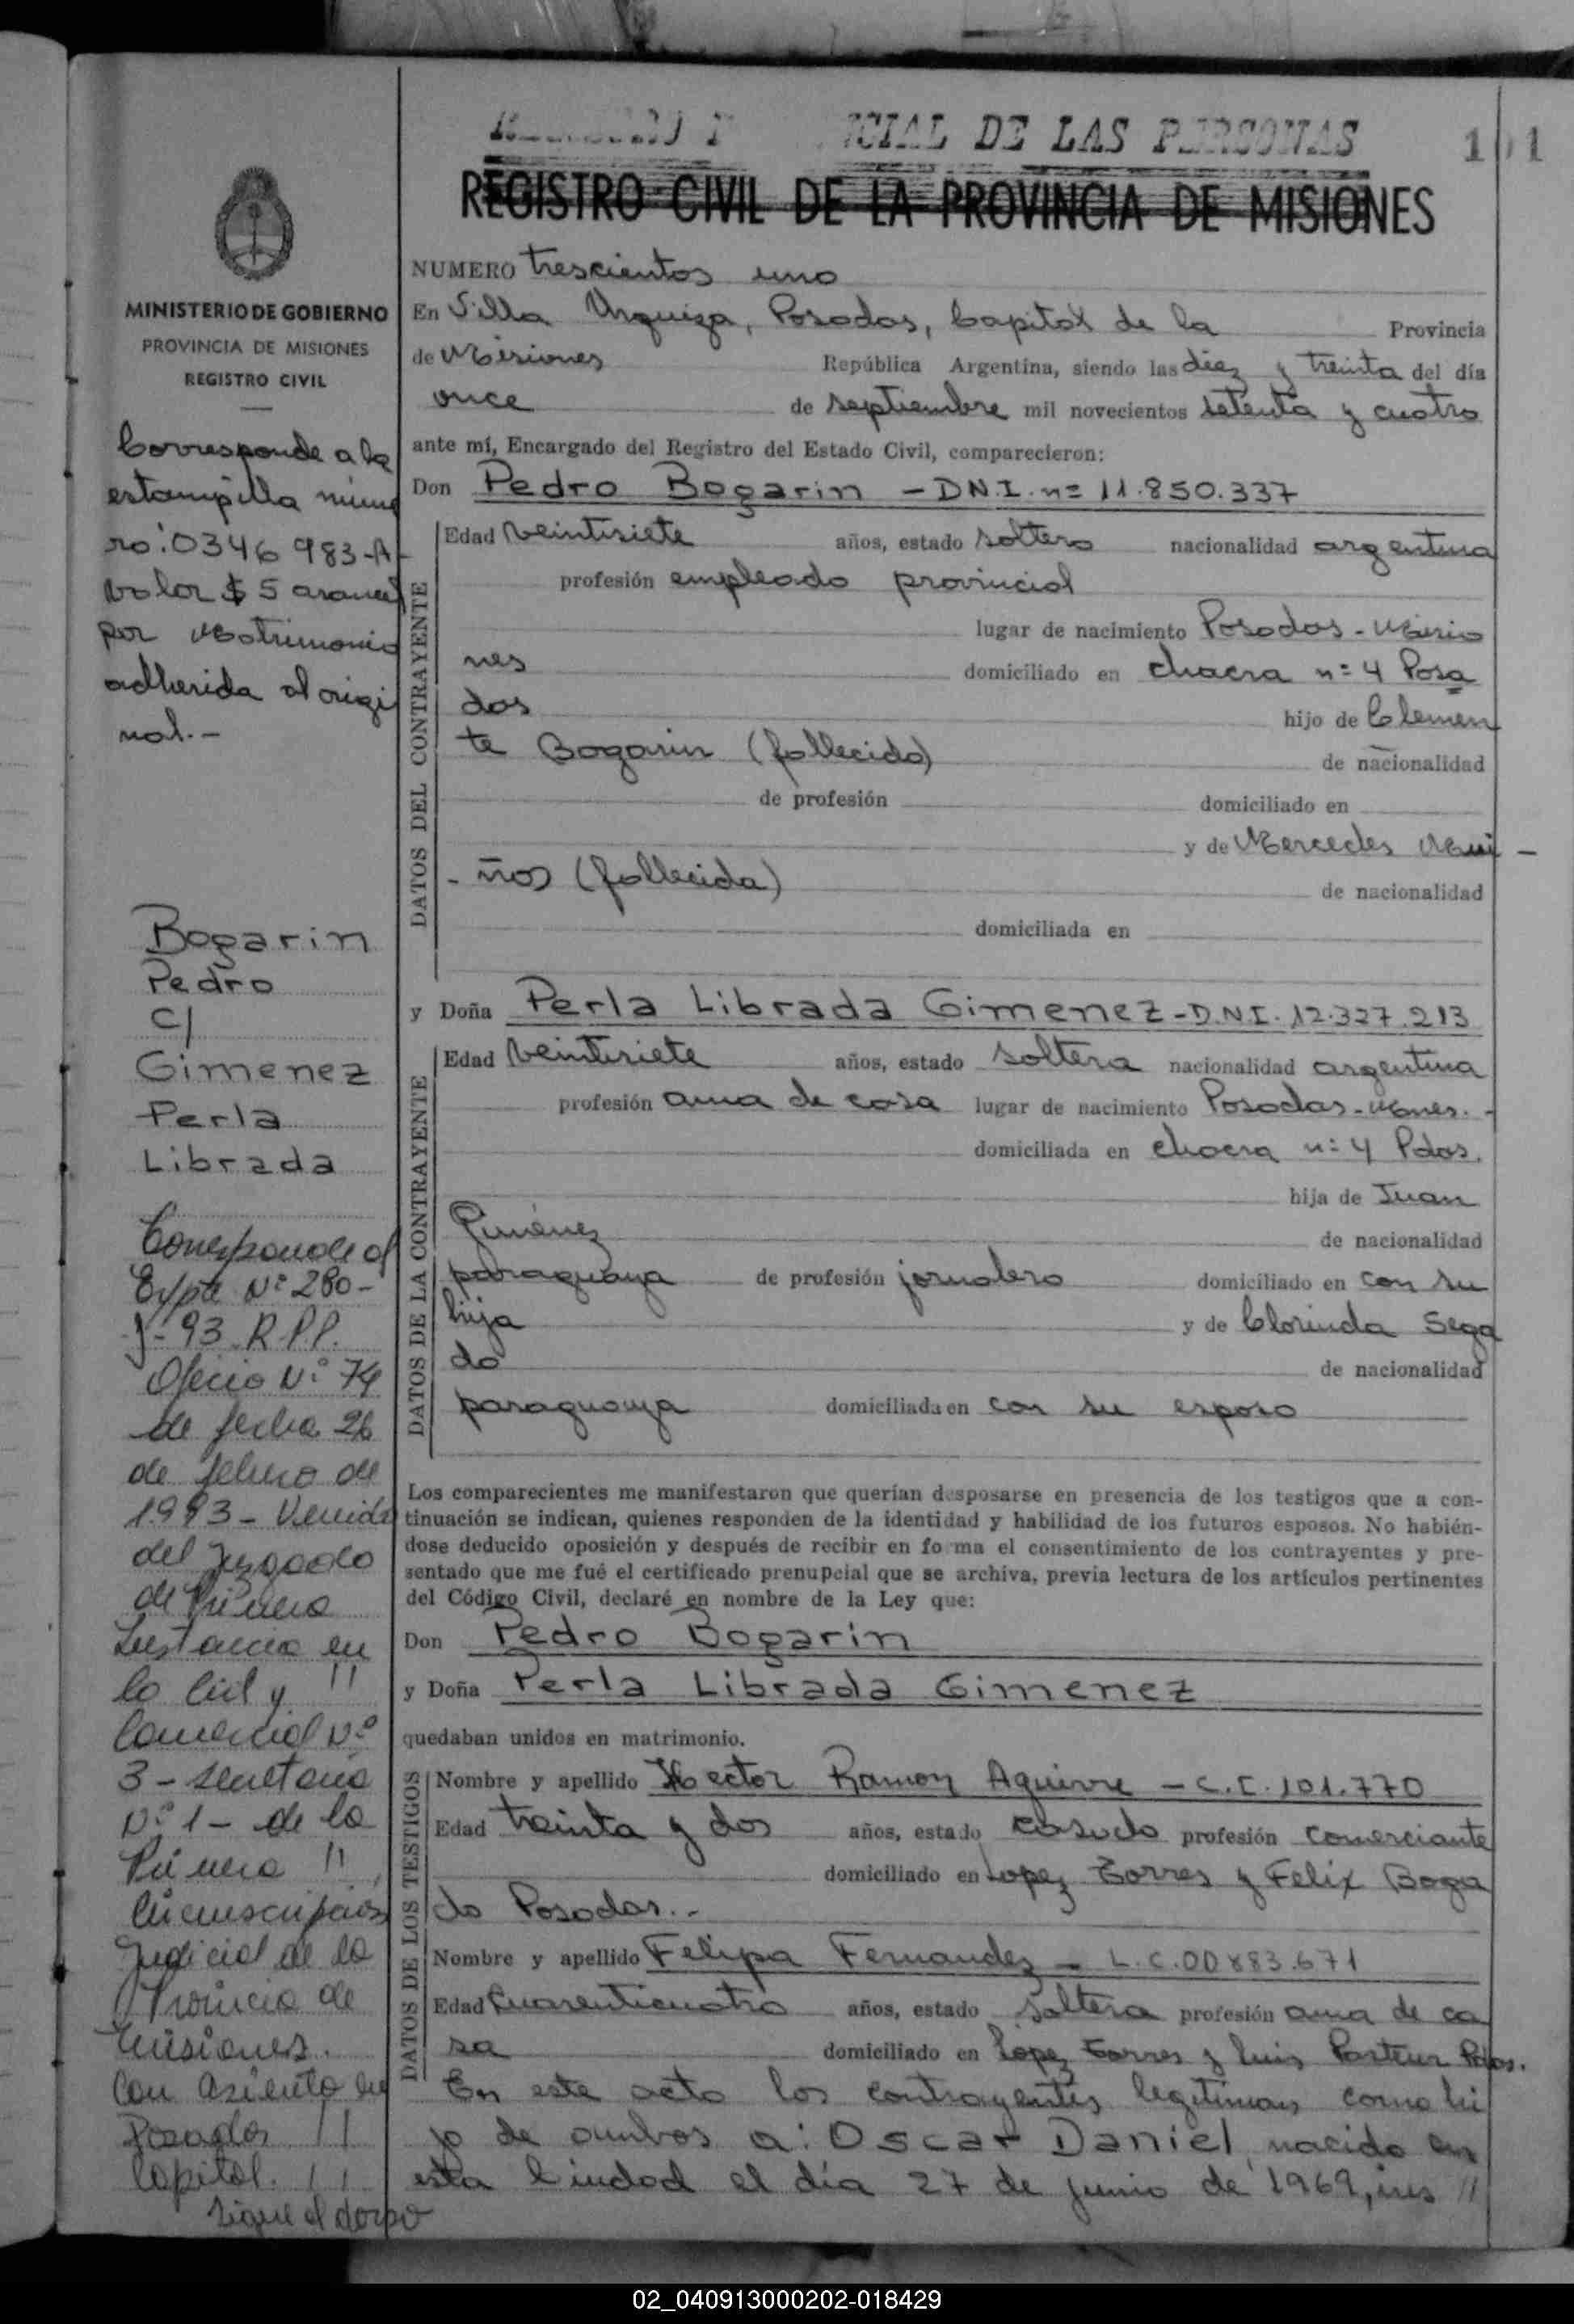 CIAL DE LAS PERSONAS
101
REGISTRO CIVIL DE LA PROVINCIA DE MISIONES
MINISTERIO DE GOBIERNO
PROVINCIA DE MISIONES
REGISTRO CIVIL
Corresponde a la
estampilla núme
ro: 0346983-A-
valor $5 arancel
por Matrimonio
adherida al origi
nal.-
Bogarin
Pedro
C/
Gimenez
Perla
Librada
Corresponde al
Expte Nº 280-
J-93 R.P.P.
Oficio Nº 74
de fecha 26
de febrero de
1993 - Venida
del Juzgado
de Primera
Instancia en
lo Civil y //
Comercial Nº
3 - secretaria
Nº 1 - de la
Primera //
Circunscripción
Judicial de la
Provincia de
Misiones.
Con asiento en
Posadas //
Capital. //
Sigue al dorso
NUMERO trescientos uno
En Villa Urquiza, Posadas, Capital de la Provincia
de Misiones República Argentina, siendo las diez y treinta del día
once de septiembre mil novecientos setenta y cuatro
ante mí, Encargado del Registro del Estado Civil, comparecieron:
Don Pedro Bogarin - DN.I. nº 11.850.337
DATOS DEL CONTRAYENTE
Edad veintisiete años, estado soltero nacionalidad argentina
profesión empleado provincial
lugar de nacimiento Posadas - Misio
nes domiciliado en chacra nº 4 Posa
das hijo de Clemen
te Bogarin (fallecido) de nacionalidad
de profesión domiciliado en
y de Mercedes Mui -
- ños (fallecida) de nacionalidad
domiciliada en
y Doña Perla Librada Gimenez - D.N.I. 12.327.213
DATOS DE LA CONTRAYENTE
Edad veintisiete años, estado soltera nacionalidad argentina
profesión ama de casa lugar de nacimiento Posadas - Mnes. -
domiciliada en chacra nº 4 Pdas.
hija de Juan
Giménez de nacionalidad
paraguaya de profesión jornalero domiciliado en con su
hija y de Clorinda Sega
do de nacionalidad
paraguaya domiciliada en con su esposo
Los comparecientes me manifestaron que querían desposarse en presencia de los testigos que a con-
tinuación se indican, quienes responden de la identidad y habilidad de los futuros esposos. No habién-
dose deducido oposición y después de recibir en forma el consentimiento de los contrayentes y pre-
sentado que me fué el certificado prenupcial que se archiva, previa lectura de los artículos pertinentes
del Código Civil, declaré en nombre de la Ley que:
Don Pedro Bogarin
y Doña Perla Librada Gimenez
quedaban unidos en matrimonio.
DATOS DE LOS TESTIGOS
Nombre y apellido Hector Ramon Aguirre - C.I. 101.770
Edad treinta y dos años, estado casado profesión comerciante
domiciliado en Lopez Torres y Felix Boga
do Posadas.-
Nombre y apellido Felipa Fernandez - L.C.
Edad Cuarenticuatro años, estado soltera profesión ama de ca
sa domiciliado en Lopez Torres y Luis Pasteur Pdas.
En este acto los contrayentes legitiman como hi
jo de ambos a: Oscar Daniel, nacido en
esta Ciudad el día 27 de junio de 1969, ins //
02_040913000202-018429